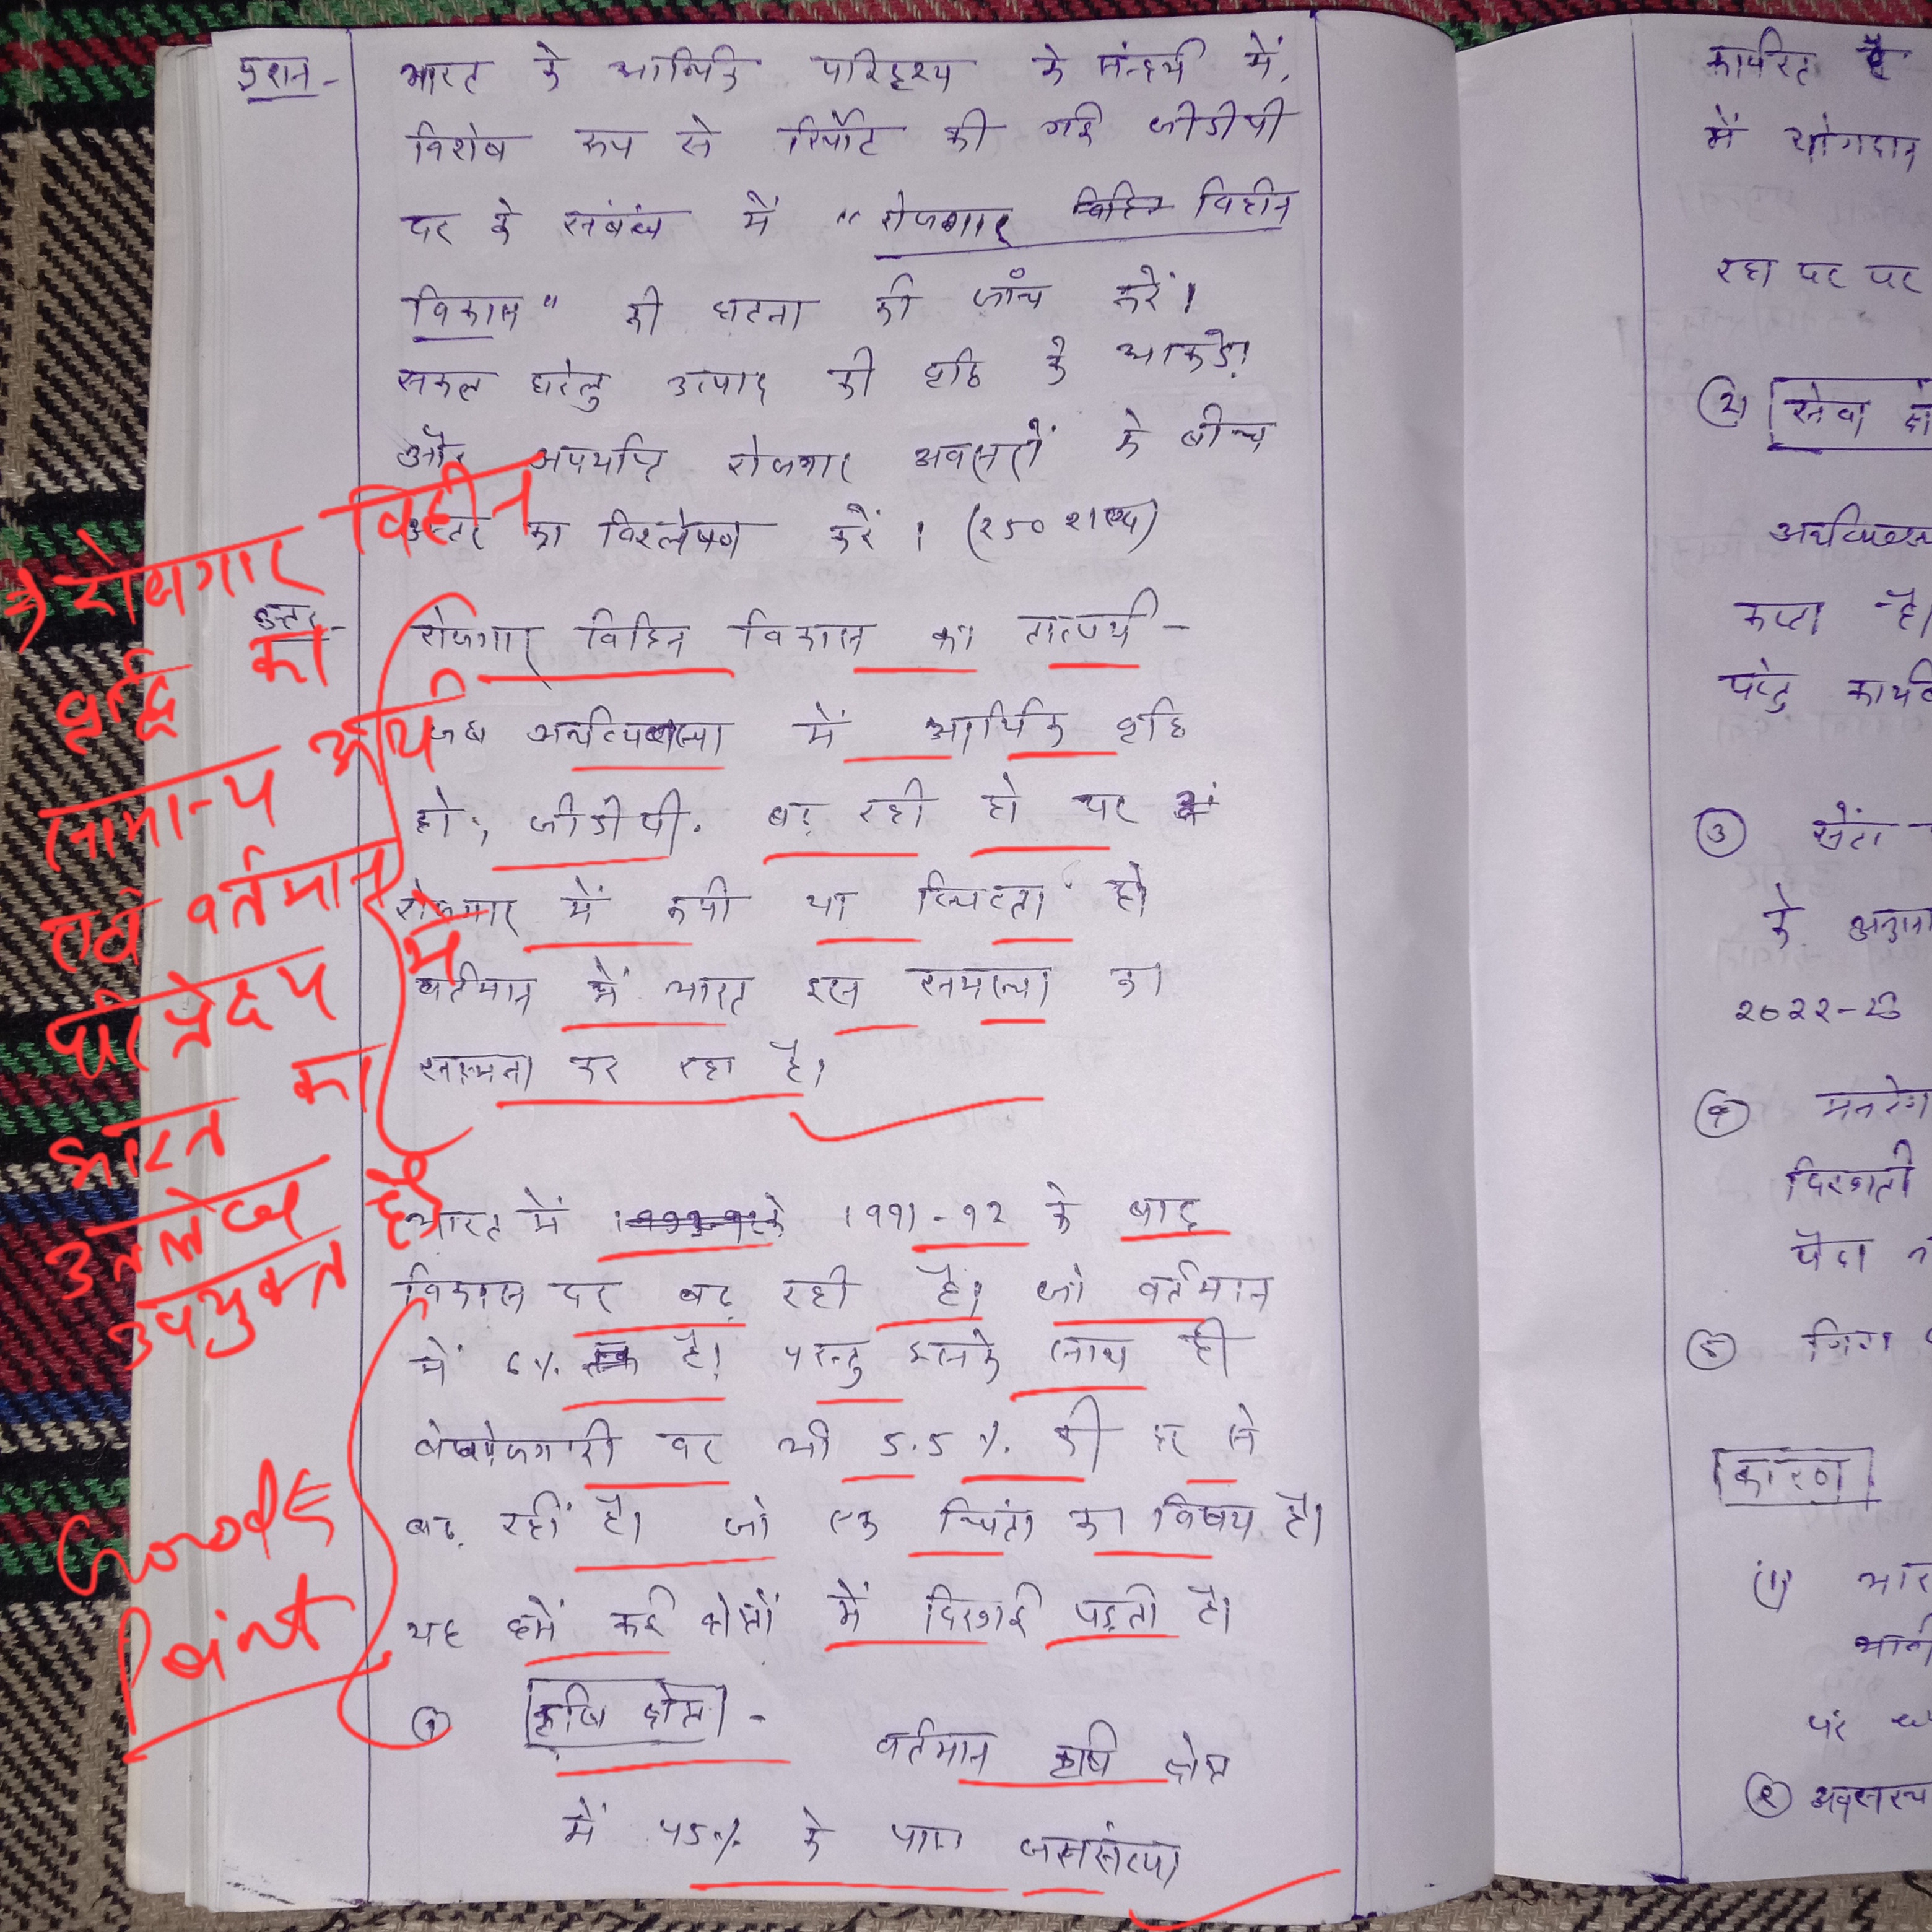 प्रशन - भारत के आर्थिक परिदृश्य के संन्दर्भ में,
विशेष रूप से रिर्पोट की गई जीडीपी
दर के संबंध में "रोजगार विहीन
विकास" की घटना की जाँच करें।
सकल घरेलु उत्पाद की वृद्धि के आकडे़
और अपर्याप्त रोजगार अवसरों के बीच
अन्तर का विश्लेषण करें। (250 शब्द)
उत्तर - रोजगार विहिन विकास का तात्पर्य -
जब अर्थव्यवस्था में आर्थिक वृद्धि
हो, जीडीपी. बढ़ रही हो पर
रोजगार में कमी या स्थिरता हो
वर्तमान में भारत इस समस्या का
सामना कर रहा है।
भारत में 1991-92 के बाद
विकास दर बढ़ रही है। जो वर्तमान
में 6% है। परन्तु इसके साथ ही
बेरोजगारी दर भी 5.5% की दर से
बढ़ रहीं है। जो एक चिंता का विषय है।
यह हमें कई क्षेत्रों में दिखाई पड़ती है।
① कृषि क्षेत्र - वर्तमान कृषि क्षेत्र
में 45% के पास जनसंख्या
→ रोजगार विहीन
वृद्धि का
सामान्य अर्थ
एवं वर्तमान
परिप्रेक्ष्य में
भारत का
उल्लेख
उपयुक्त है
Good
Point
कार्यरत है
में योगदान
रहा पर पर
② सेवा क्षे
करता है।
परंतु कार्य
③
के अनुसा
2022-23
④ मनरेगा
पैदा
⑤ गिग
कारण
(1) भार
②